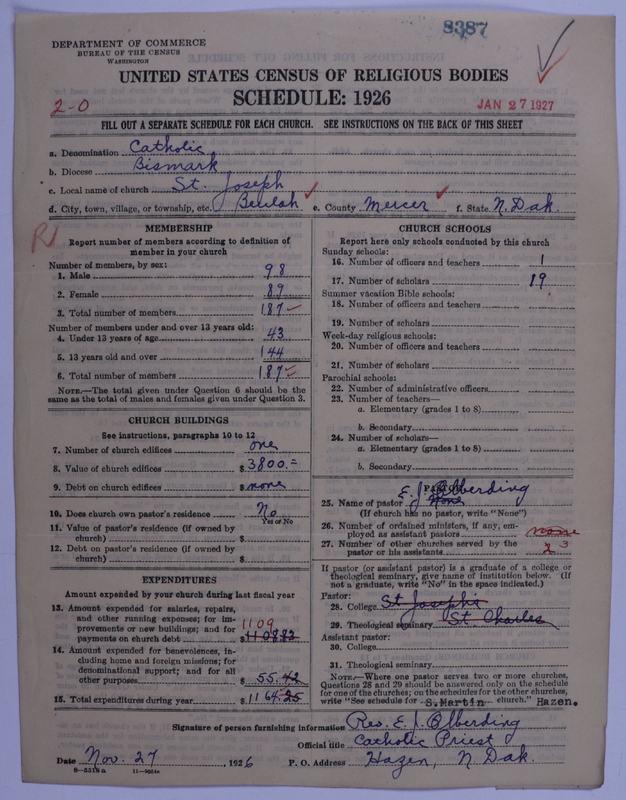 8387
DEPARTMENT OF COMMERCE
BUREAU OF THE CENSUS
WASHINGTON
UNITED STATES CENSUS OF RELIGIOUS BODIES
SCHEDULE: 1926
2-0
JAN 27 1927
FILL OUT A SEPARATE SCHEDULE FOR EACH CHURCH. SEE INSTRUCTIONS ON THE BACK OF THIS SHEET
a. Denomination Catholic
b. Diocese Bismark
c. Local name of church St. Joseph
d. City, town, village, or township, etc. Beulah e. County Mercer f. State N. Dak.
MEMBERSHIP
Report number of members according to definition of
member in your church
Number of members, by sex:
1. Male 98
2. Female 89
3. Total number of members 187
Number of members under and over 13 years old:
4. Under 13 years of age 43
5. 13 years old and over 144
6. Total number of members 187
NOTE.—The total given under Question 6 should be
same as the total of males and females given under Question 3.
CHURCH BUILDINGS
See instructions, paragraphs 10 to 12
7. Number of church edifices one
8. Value of church edifices $3800.=
9. Debt on church edifices $none
10. Does church own pastor's residence No
Yes or No
11. Value of pastor's residence (if owned by
church) $
12. Debt on pastor's residence (if owned by
church) $
EXPENDITURES
Amount expended by your church during last fiscal year
13. Amount expended for salaries, repairs,
and other running expenses; for im-
provements or new buildings; and for
payments on church debt $1108.83
1109
14. Amount expended for benevolences, in-
cluding home and foreign missions; for
denominational support; and for all
other purposes $55.42
15. Total expenditures during year $1164.25
CHURCH SCHOOLS
Report here only schools conducted by this church
Sunday schools:
16. Number of officers and teachers 1
17. Number of scholars 19
Summer vacation Bible schools:
18. Number of officers and teachers
19. Number of scholars
Week-day religious schools:
20. Number of officers and teachers
21. Number of scholars
Parochial schools:
22. Number of administrative officers
23. Number of teachers—
a. Elementary (grades 1 to 8)
b. Secondary
24. Number of scholars—
a. Elementary (grades 1 to 8)
b. Secondary
PASTOR
E. J. Alberding
25. Name of pastor None
(If church has no pastor, write "None")
26. Number of ordained ministers, if any, em-
ployed as assistant pastors none
27. Number of other churches served by the
pastor or his assistants 3
If pastor (or assistant pastor) is a graduate of a college or
theological seminary, give name of institution below. (If
not a graduate, write "No" in the space indicated.)
Pastor:
28. College St Josephs
29. Theological seminary St. Charles
Assistant pastor:
30. College
31. Theological seminary
NOTE.—Where one pastor serves two or more churches,
Questions 28 and 29 should be answered only on the schedule
for one of the churches; on the schedules for the other churches,
write "See schedule for S.Martin church." Hazen.
Signature of person furnishing information Rev. E. J. Alberding
Official title Catholic Priest
Date Nov. 27, 1926 P. O. Address Hazen, N. Dak.
8—5518a 11—9604